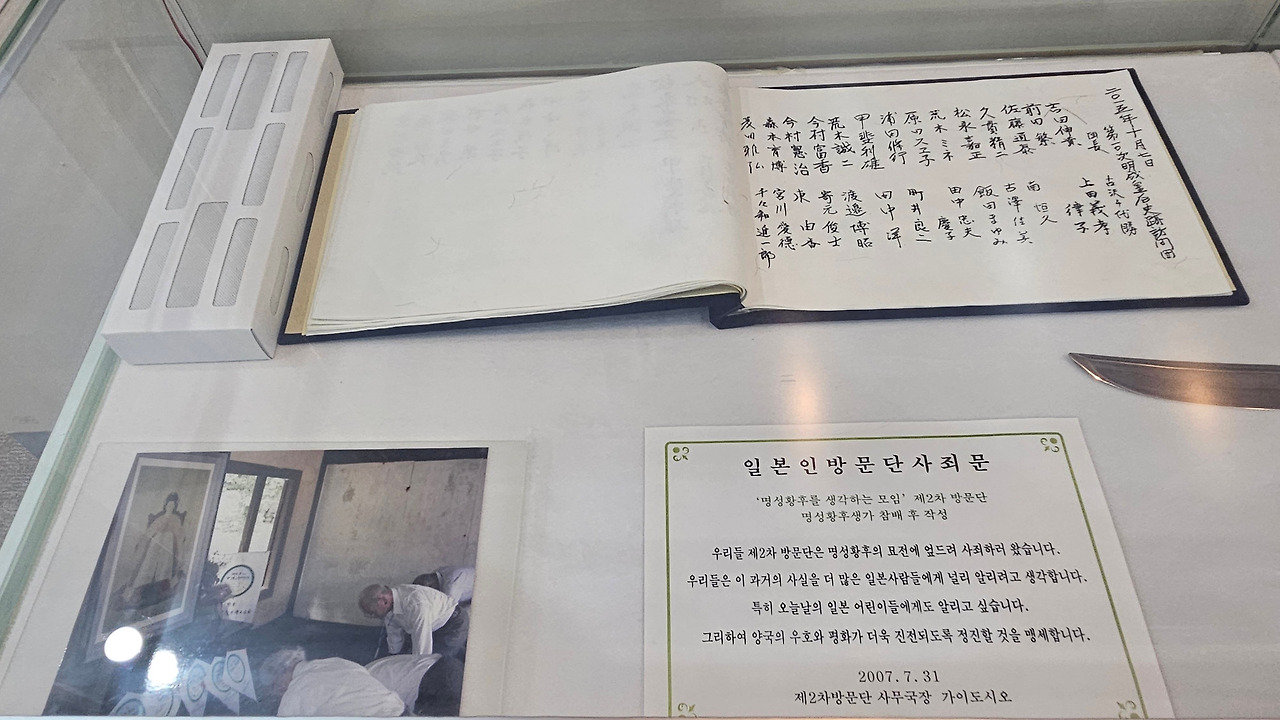 二〇〇五年十月七日
第二回明成皇后史跡訪問団
団長
上田義孝
律子
吉田伸
前田繁
佐藤道
南 恒久
古澤佳英
松永嘉正
飯田まゆみ
荒木ミネ
田中忠夫
慶子
町井良二
浦田修行
田中洋
甲斐利雄
渡邉博昭
荒木誠二
寄元俊士
今村富香
今村憲治
森本育博
宮川愛徳
일본인방문단사죄문
'명성황후를 생각하는 모임' 제2차 방문단
명성황후생가 참배 후 작성
우리들 제2차 방문단은 명성황후의 묘전에 엎드려 사죄하러 왔습니다.
우리들은 이 과거의 사실을 더 많은 일본사람들에게 널리 알리려고 생각합니다.
특히 오늘날의 일본 어린이들에게도 알리고 싶습니다.
그리하여 양국의 우호와 평화가 더욱 진전되도록 정진할 것을 맹세합니다.
2007.7.31
제2차방문단 사무국장 가이도시오